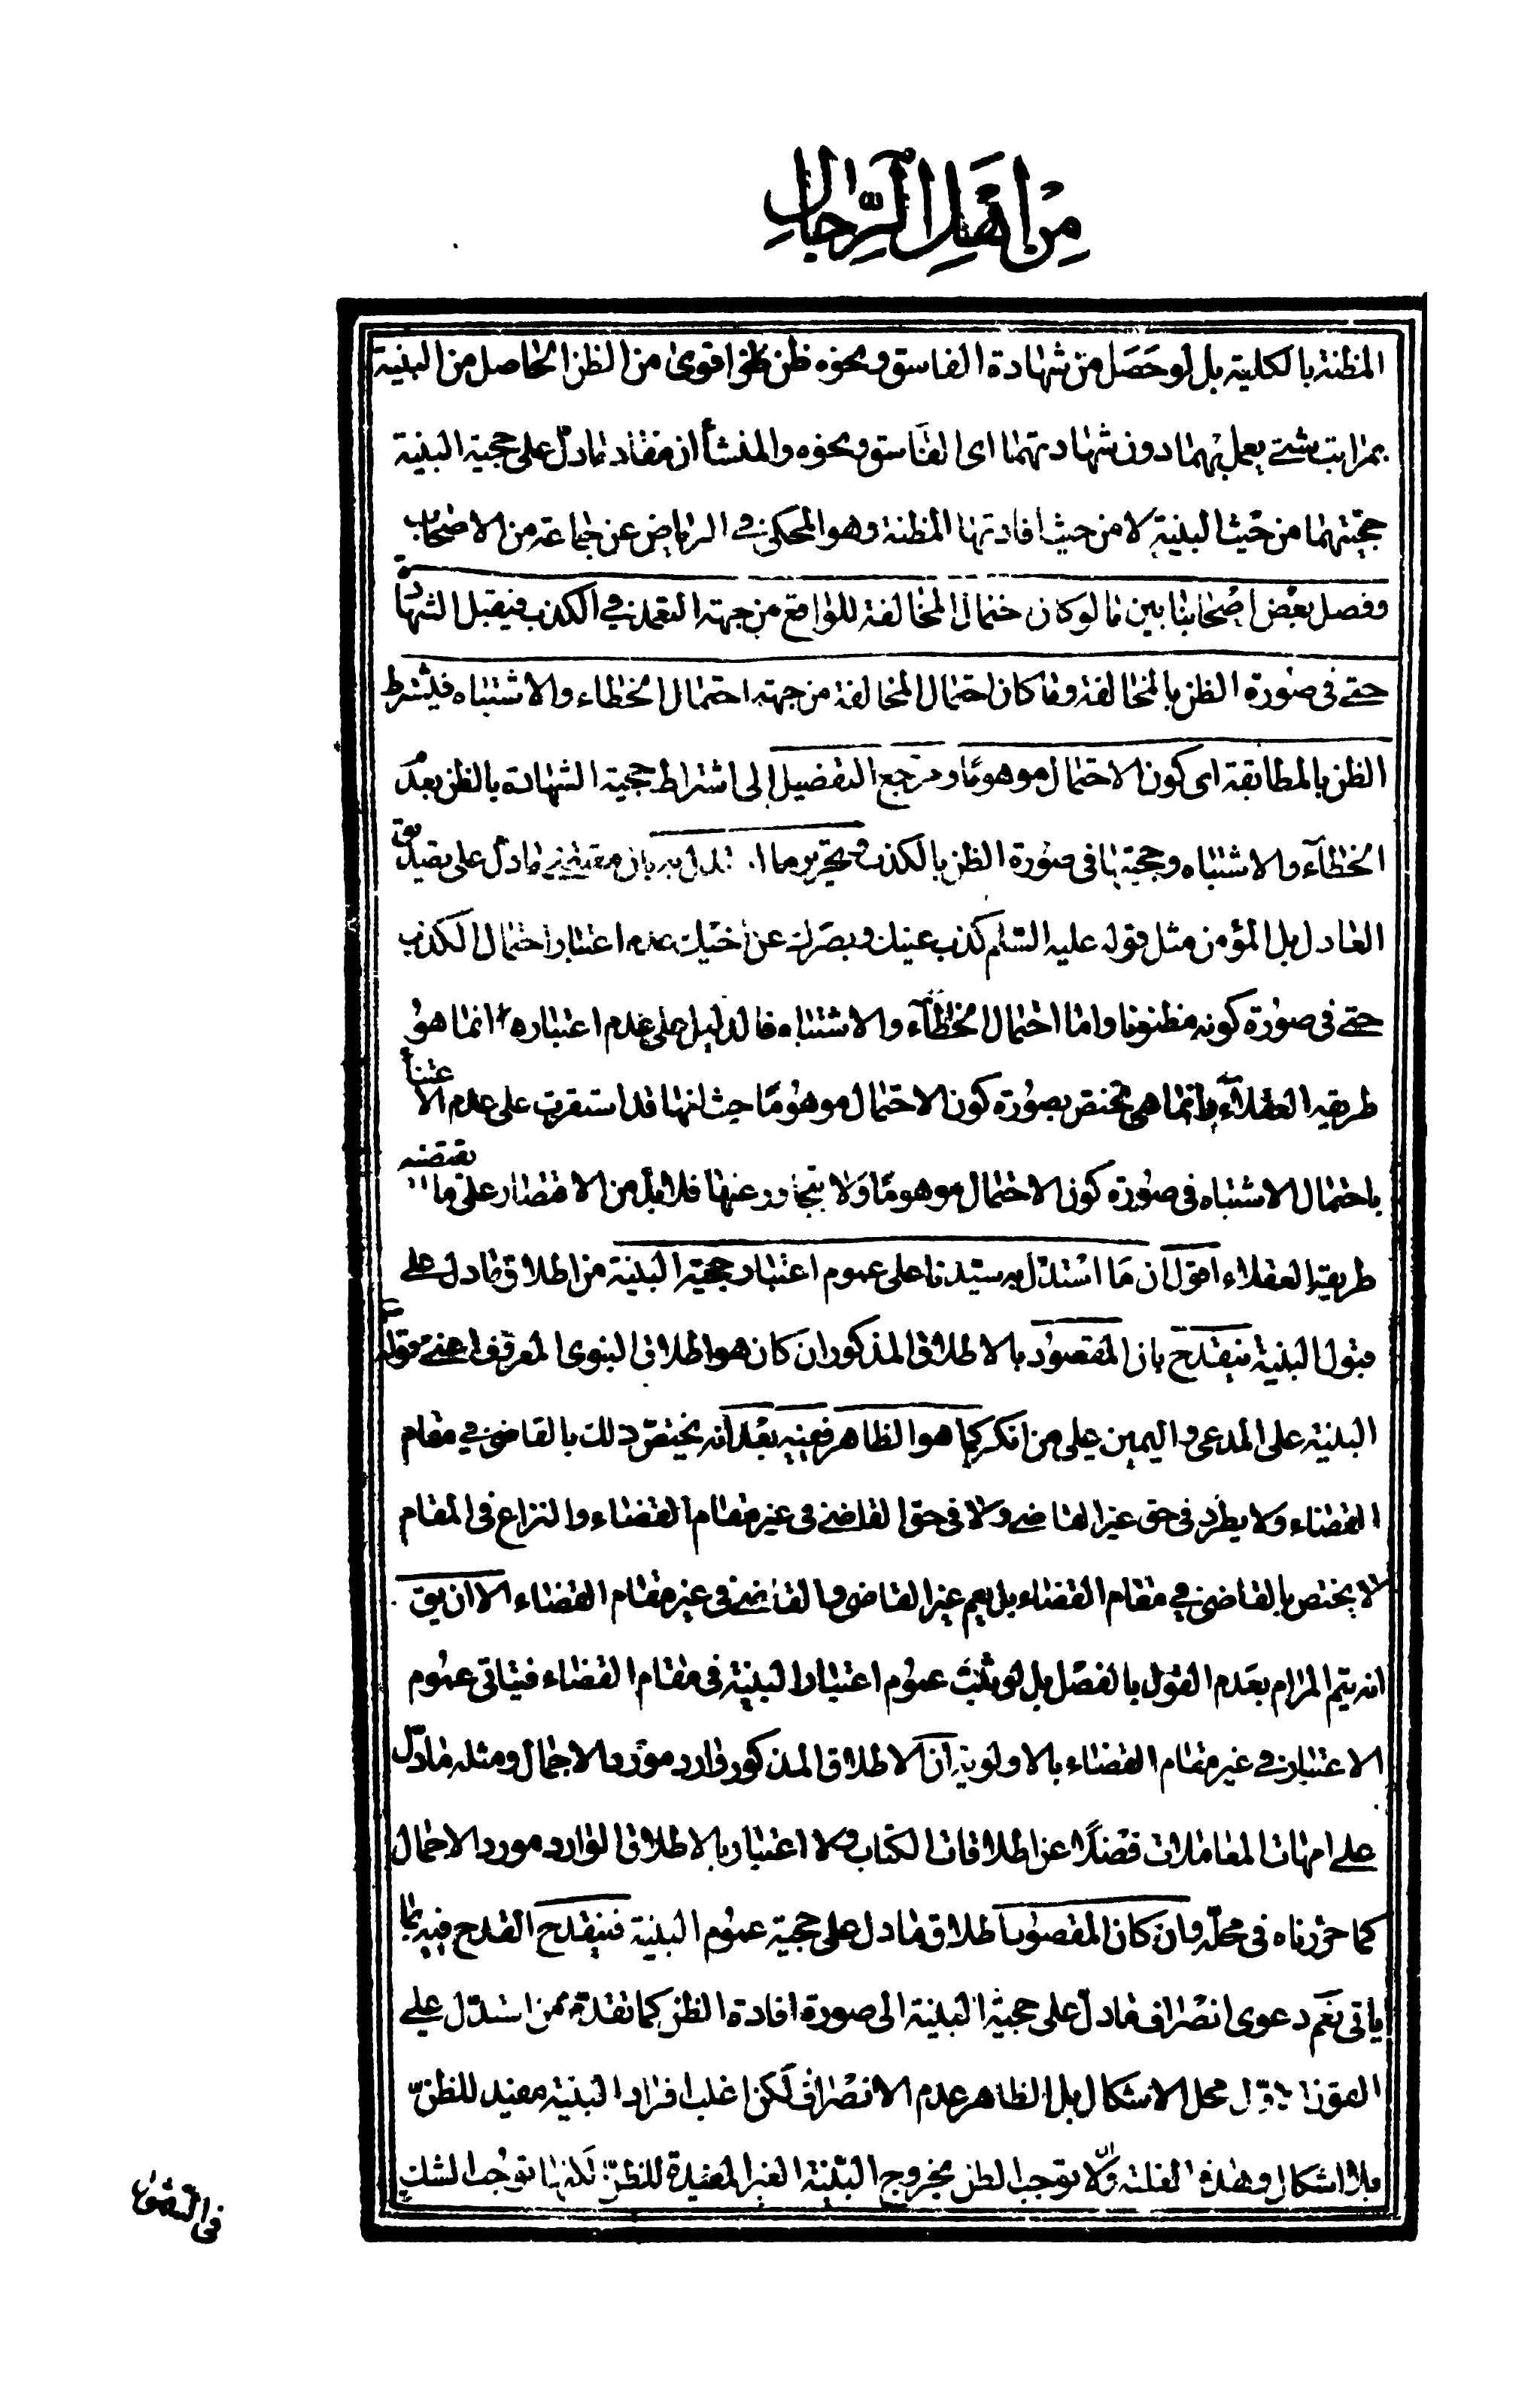 من اهل الرّجال
المظنة بالكلية بل لو حصل من شهادة الفاسق ونحوه ظن اقوى من الظن الحاصل من البينة
بمراتب شتى يعمل بهما دون شهادتهما اى الفاسق ونحوه والمنشأ ان مفاد ما دلّ على حجية البينة
حجيتهما من حيث البينة لا من حيث افادتها المظنة وهو المحكى فى الرياض عن جماعة من الاصحاب
وفصل بعض اصحابنا بين ما لو كان احتمال المخالفة للواقع من جهة التعمد فى الكذب فيقبل الشهادة
حتى فى صورة الظن بالمخالفة وما كان احتمال المخالفة من جهة احتمال الخطاء والاشتباه فيشترط
الظن بالمطابقة اى كون الاحتمال موهومًا ومرجع التفصيل الى اشتراط حجية الشهادة بالظن بعدم
الخطآء والاشتباه وحجيتها فى صورة الظن بالكذب وتحرير ما استدل به بان مقتضى ما دلّ على تصديق
العادل بل المؤمن مثل قوله عليه السّلم كذب عينك وبصرك عن اخيك عدم اعتبار احتمال الكذب
حتى فى صورة كونه مظنونا واما احتمال الخطآء والاشتباه فالدليل على عدم اعتباره انما هو
طريقة العقلآء وانما هى تختص بصورة كون الاحتمال موهومًا حيث انها قد استقرت على عدم الاعتنأ
باحتمال الاشتباه فى صورة كون الاحتمال موهومًا ولا يتجاوز عنها فلا بدّ من الاقتصار على ما يقتضيه
طريقة العقلاء اقول ان ما استدل به سيّدنا على عموم اعتبار حجية البينة من اطلاق ما دل على
قبول البينة ينقدح بان المقصود بالاطلاق المذكور ان كان هو اطلاق النبوى المعروف اعنى قوله
البينة على المدعى واليمين على من انكر كما هو الظاهر ففيه بعد انه يختصّ ذلك بالقاضى فى مقام
القضاء ولا يطرد فى حق غير القاضى ولا فى حق القاضى فى غير مقام القضاء والنزاع فى المقام
لا يختص بالقاضى فى مقام القضاء بل يعم غير القاضى والقاضى فى غير مقام القضاء الا ان يق
انه يتم المرام بعدم القول بالفصل بل لو ثبت عموم اعتبار البينة فى مقام القضاء فيتاتى عموم
الاعتبار فى غير مقام القضاء بالاولوية ان الاطلاق المذكور وارد مورد الاجمال ومثله ما دلّ
على امهات المعاملات فضلًا عن اطلاقات الكتاب ولا اعتبار بالاطلاق الوارد مورد الاجمال
كما حرّرناه فى محلّه وان كان المقصود اطلاق ما دل على حجية عموم البينة فينقدح القدح فيه بما
ياتى نعم دعوى انصراف ما دلّ على حجية البينة الى صورة افادة الظن كما تقدم ممن استدلّ على
القول محل الاشكال بل الظاهر عدم الانصراف لكن اغلب افراد البينة مفيد للظنّ
بلا اشكال وهذه الغلبة لا توجب الظن بخروج البينة الغير المفيدة للظنّ لكنها توجب الشك